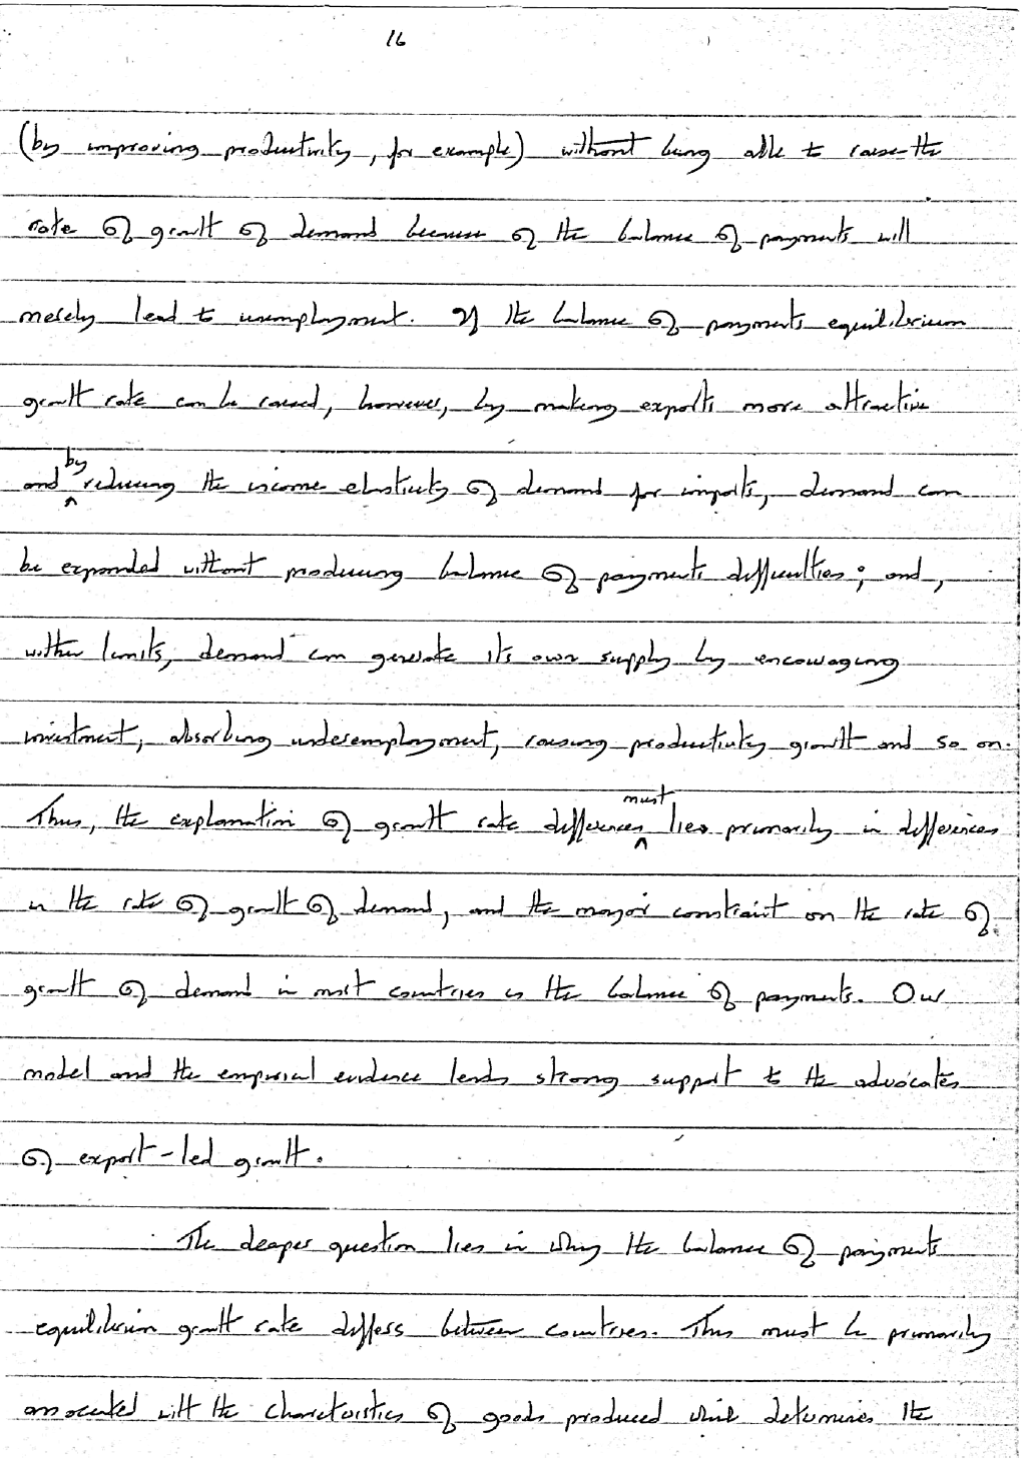 16
(by improving productivity, for example) without being able to raise the
rate of growth of demand because of the balance of payments will
merely lead to unemployment. If the balance of payments equilibrium
growth rate can be raised, however, by making exports more attractive
and by reducing the income elasticity of demand for imports, demand can
be expanded without producing balance of payments difficulties; and,
within limits, demand can generate its own supply by encouraging
investment, absorbing underemployment, raising productivity growth and so on.
Thus, the explanation of growth rate differences must lies primarily in differences
in the rate of growth of demand, and the major constraint on the rate of
growth of demand in most countries is the balance of payments. Our
model and the empirical evidence lends strong support to the advocates
of export-led growth.
The deeper question lies in why the balance of payments
equilibrium growth rate differs between countries. This must be primarily
associated with the characteristics of goods produced which determines the